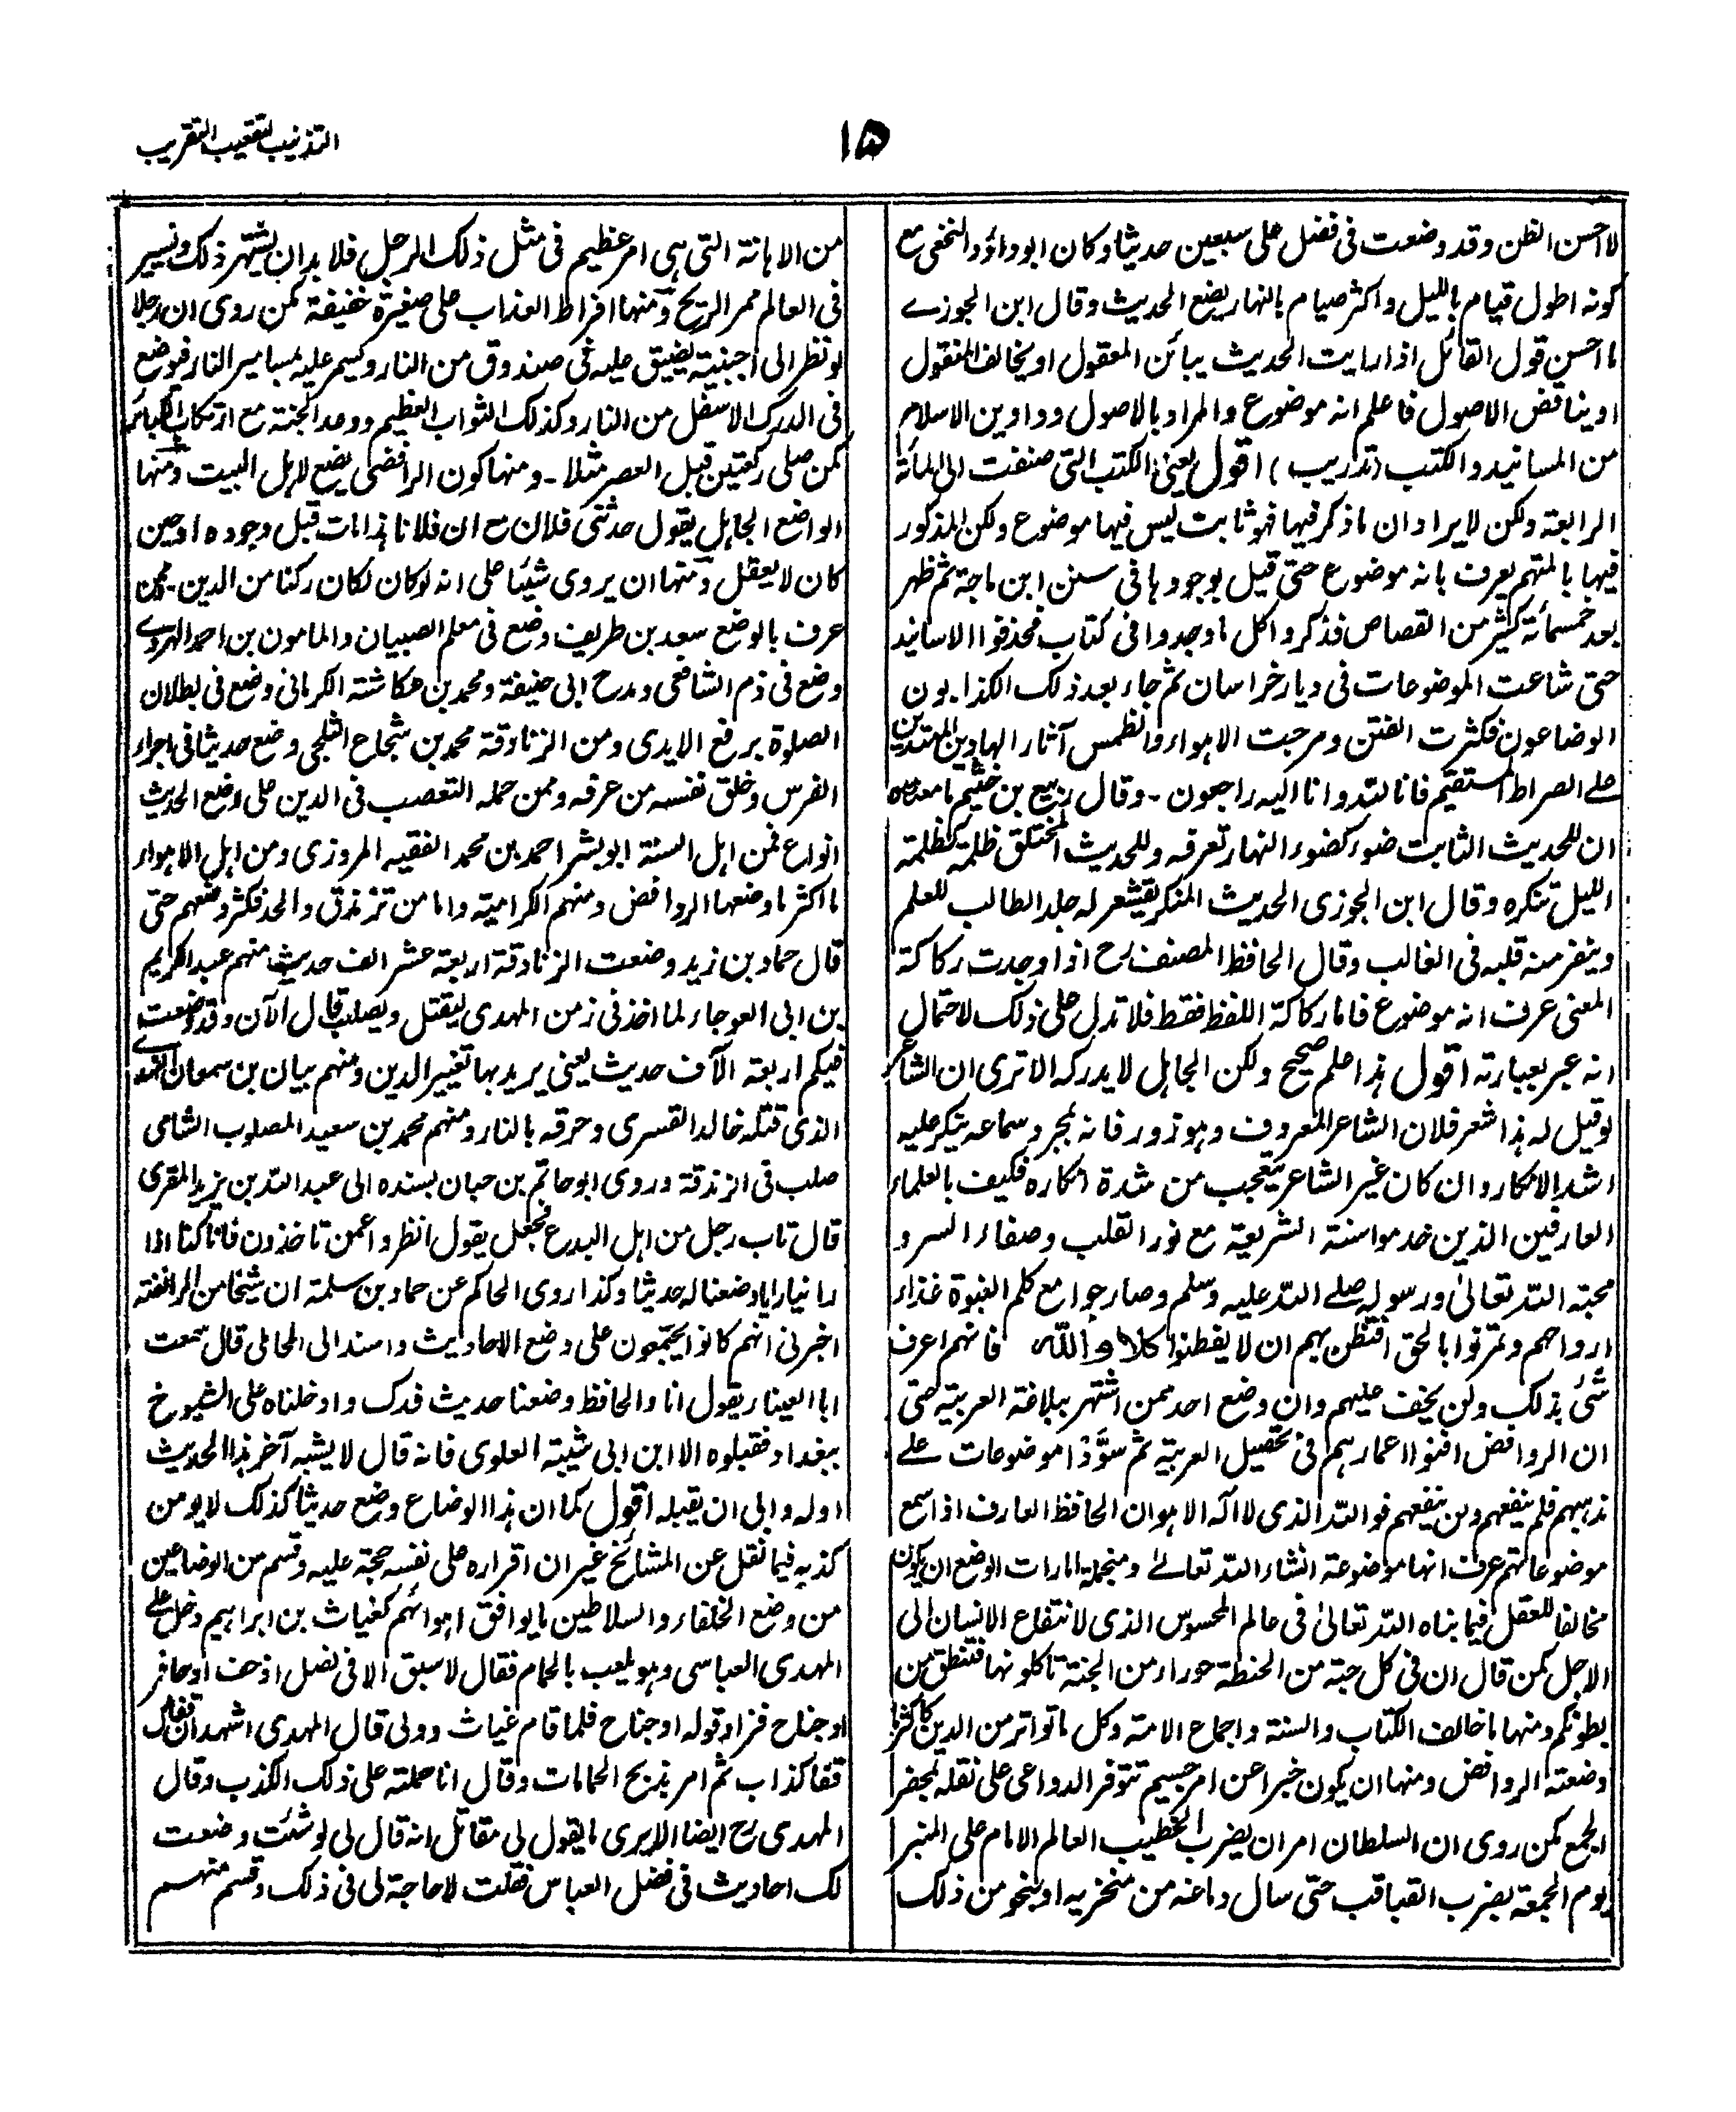 التذنیب لتعقیب التقریب
١٥
لا احسن الظن وقد وضعت فی فضل علی سبعین حدیثا وکان ابو داؤد النخعی مع
کونه اطول قیام باللیل واکثر صیام بالنهار یضع الحدیث وقال ابن الجوزے
ما احسن قول القائل اذا رایت الحدیث یبائن المعقول او یخالف المنقول
او یناقض الاصول فاعلم انه موضوع والمراد بالاصول دواوین الاسلام
من المسانید والکتب (تدریب) اقول یعنی الکتب التی صنفت الی المأة
الرابعة ولکن لا یراد ان ما ذکر فیها فهو ثابت لیس فیها موضوع ولکن المذکور
فیها بالمتهم یعرف بانه موضوع حتی قیل بوجودها فی سنن ابن ماجة ثم ظهر
بعد خمسمأئة کثیر من القصاص فذکروا کل ما وجدوا فی کتاب فحذفوا الاسانید
حتی شاعت الموضوعات فی دیار خراسان ثم جاء بعد ذلک الکذابون
الوضاعون فکثرت الفتن ومرجت الاهواء وانطمس آثار الهادین المهتدین
علے الصراط المستقیم فانا لله وانا الیه راجعون - وقال ربیع بن خثیم ما معناه
ان للحدیث الثابت ضوء کضوء النهار تعرفه وللحدیث المختلق ظلمة کظلمة
اللیل تنکره وقال ابن الجوزی الحدیث المنکر یقشعر له جلد الطالب للعلم
وینفر منه قلبه فی الغالب وقال الحافظ المصنف رح اذا وجدت رکاکة
المعنی عرف انه موضوع فاما رکاکة اللفظ فقط فلا تدل علی ذلک لاحتمال
انه عبر بعبارته اقول هذا علم صحیح ولکن الجاهل لا یدرکه الا تری ان الشاعر
لو قیل له هذا شعر فلان الشاعر المعروف وهو زور فانه بمجرد سماعه ینکر علیه
اشد الانکار وان کان غیر الشاعر یتعجب من شدة انکاره فکیف بالعلماء
العارفین الذین خدموا سنة الشریعة مع نور القلب وصفاء السر و
محبة الله تعالیٰ ورسوله صلے الله علیه وسلم وصار جوامع کلم النبوة غذاء
ارواحهم وتمرنوا بالحق افتظن بهم ان لا یفطنوا کلا والله فانهم اعرف
شئ بذلک ولن یخف علیهم وان وضع احد ممن اشتهر ببلاغة العربیة حتی
ان الروافض افنوا اعمارهم فی تحصیل العربیة ثم سوّدوا موضوعات علے
مذهبهم فلم ینفعهم ولن ینفعهم فو الله الذی لا اله الا هو ان الحافظ العارف اذا سمع
موضوعاتهم عرف انها موضوعة انشاء الله تعالےٰ ومنجملة امارات الوضع ان یکون
مخالفا للعقل فیما بناه الله تعالیٰ فی عالم المحسوس الذی لانتفاع الانسان الی
الاجل کمن قال ان فی کل حبة من الحنطة حوراء من الجنة تاکلونها فتنطق من
بطونکم ومنها ما خالف الکتاب والسنة واجماع الامة وکل ما تواتر من الدین کاکثر ما
وضعته الروافض ومنها ان یکون خبرا عن امر جسیم تتوفر الدواعی علی نقله بمحضر
الجمع کمن روی ان السلطان امر ان یضرب الخطیب العالم الامام علی المنبر
یوم الجمعة بضرب القباقب حتی سال دماغه من منخریه او نحو من ذلک
من الاهانة التی هی امر عظیم فی مثل ذلک الرجل فلا بد ان یشتهر ذلک ویسیر
فی العالم ممر الریح ومنها افراط العذاب علی صغیرة خفیفة کمن روی ان رجلا
لو نظر الی اجنبیة یضیق علیه فی صندوق من النار ویسمر علیه بمسامیر النار فوضع
فی الدرک الاسفل من النار وکذلک الثواب العظیم ووعد الجنة مع ارتکاب الکبائر
کمن صلی رکعتین قبل العصر مثلا - ومنها کون الرافضی یضع لاهل البیت ومنها
الواضع الجاهل یقول حدثنی فلان مع ان فلانا هذا مات قبل وجوده او حین
کان لا یعقل ومنها ان یروی شیئا علی انه لو کان لکان رکنا من الدین - فممن
عرف بالوضع سعد بن طریف وضع فی معلم الصبیان والمامون بن احمد الهروے
وضع فی ذم الشافعی ومدح ابی حنیفة ومحمد بن عکاشة الکرمانی وضع فی بطلان
الصلوة برفع الایدی ومن الزنادقة محمد بن شجاع الثلجی وضع حدیثا فی اجراء
الفرس وخلق نفسه من عرقه وممن حمله التعصب فی الدین علی وضع الحدیث
انواع فمن اهل السنة ابو بشر احمد بن محمد الفقیه المروزی ومن اهل الاهواء
ما اکثر ما وضعها الروافض ومنهم الکرامیة واما من تزندق والحد فکثر وضعهم حتی
قال حماد بن زید وضعت الزنادقة اربعة عشر الف حدیث منهم عبد الکریم
بن ابی العوجاء لما اخذ فی زمن المهدی لیقتل ویصلب قال الآن وقد وضعت
فیکم اربعة الآف حدیث یعنی یرید بها تغییر الدین ومنهم بیان بن سمعان
الذی قتله خالد القسری وحرقه بالنار ومنهم محمد بن سعید المصلوب الشامی
صلب فی الزندقة وروی ابو حاتم بن حبان بسنده الی عبد الله بن یزید المقری
قال تاب رجل من اهل البدع فجعل یقول انظروا عمن تاخذون فانا کنا اذا
راینا رایا وضعنا له حدیثا وکذا روی الحاکم عن حماد بن سلمة ان شیخا من الرافضة
اخبرنی انهم کانوا یجتمعون علی وضع الاحادیث واسند الی المحاملی قال سمعت
ابا العیناء یقول انا والحافظ وضعنا حدیث فدک وادخلناه علی الشیوخ
ببغداد فقبلوه الا ابن ابی شیبة العلوی فانه قال لا یشبه آخر هذا الحدیث
اوله وابی ان یقبله اقول کما ان هذا الوضاع وضع حدیثا کذلک لا یومن
کذبه فیما نقل عن المشائخ غیر ان اقراره علی نفسه حجة علیه وقسم من الوضاعین
من وضع الخلفاء والسلاطین ما یوافق اهوائهم کغیاث بن ابراهیم دخل علے
المهدی العباسی وهو یلعب بالحمام فقال لا سبق الا فی نصل او خف او حافر
او جناح فزاد قوله او جناح فلما قام غیاث وولی قال المهدی اشهد ان قفاک
قفا کذاب ثم امر بذبح الحمامات وقال انا حملته علی ذلک الکذب وقال
المهدی رح ایضا الا یری ما یقول لی مقاتل انه قال لی لو شئت وضعت
لک احادیث فی فضل العباس فقلت لا حاجة لی فی ذلک وقسم منهم